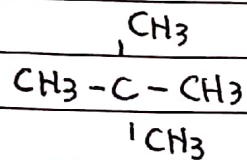 CH3
CH3-C-CH3
CH3